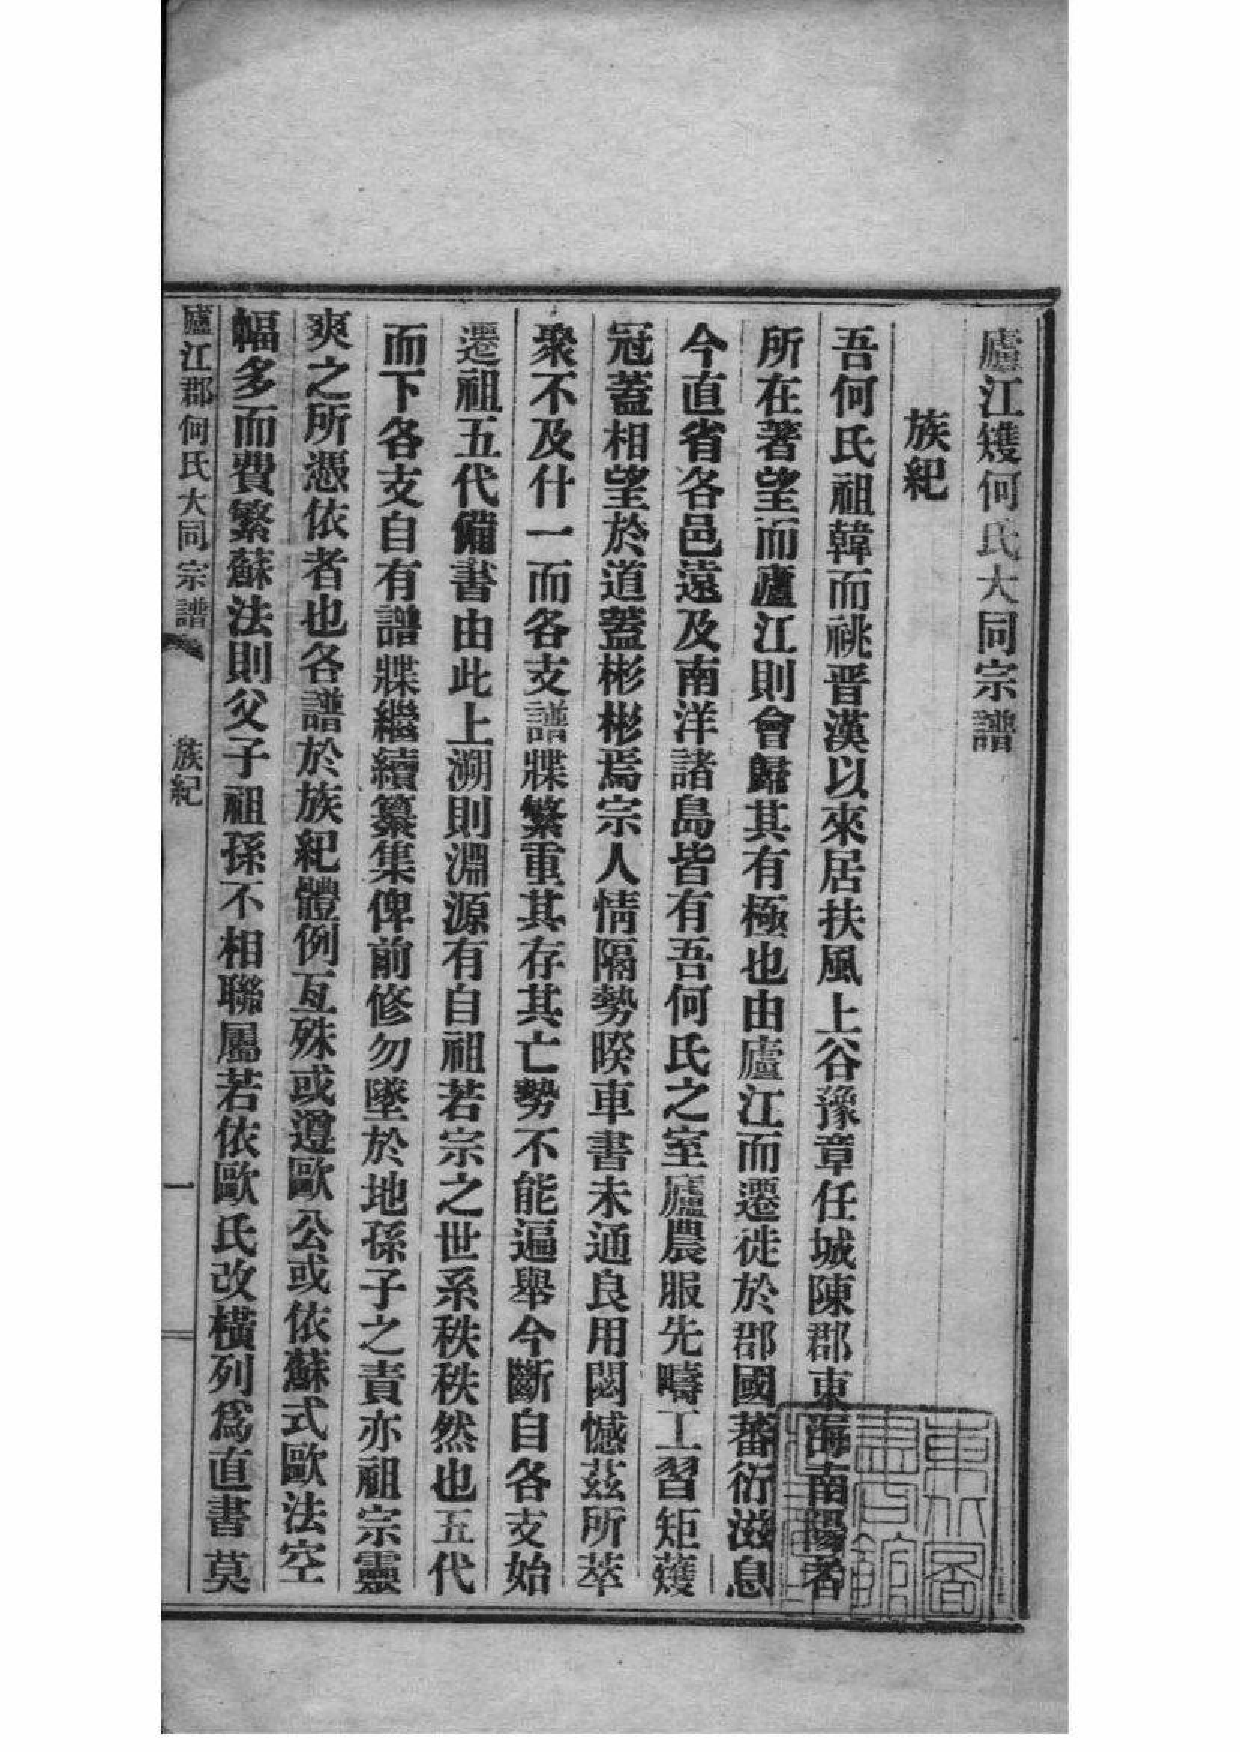 廬江䕫何氏大同宗譜
族紀
吾何氏祖韓而祧晋漢以來居扶風上谷豫章任城陳郡東海南陽者
所在著望而廬江則會歸其有極也由廬江而遷徙於郡國蕃衍滋息
今直省各邑遠及南洋諸島皆有吾何氏之室廬農服先疇工習矩矱
冠蓋相望於道蓋彬彬焉宗人情隔勢暌車書未通良用閎憾茲所萃
聚不及什一而各支譜牒繁重其存其亡勢不能遍舉今斷自各支始
遷祖五代備書由此上溯則淵源有自祖若宗之世系秩秩然也五代
而下各支自有譜牒繼續纂集俾前修勿墜於地孫子之責亦祖宗靈
爽之所憑依者也各譜於族紀體例亙殊或遵歐公或依蘇式歐法空
幅多而費繁蘇法則父子祖孫不相聯屬若依歐氏改橫列爲直書莫
廬江郡何氏大同宗譜 族紀 一